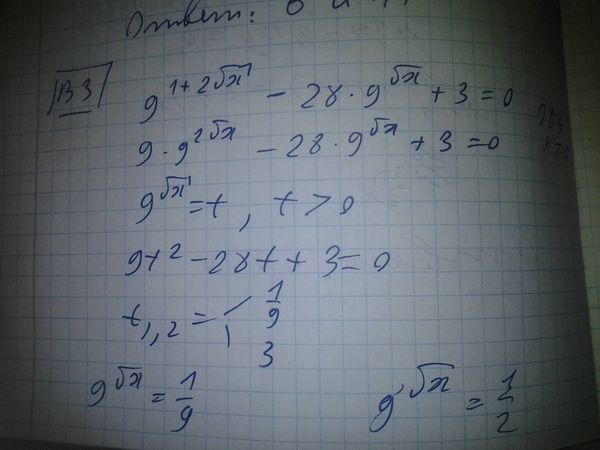 Ответ: 0 и
В3
9^{1+2√x} - 28 · 9^{√x} + 3 = 0
9 · 9^{2√x} - 28 · 9^{√x} + 3 = 0
9^{√x} = t, t > 0
9t² - 28t + 3 = 0
t_{1,2} = 1/9
3
9^{√x} = 1/9 9^{√x} = 1/2